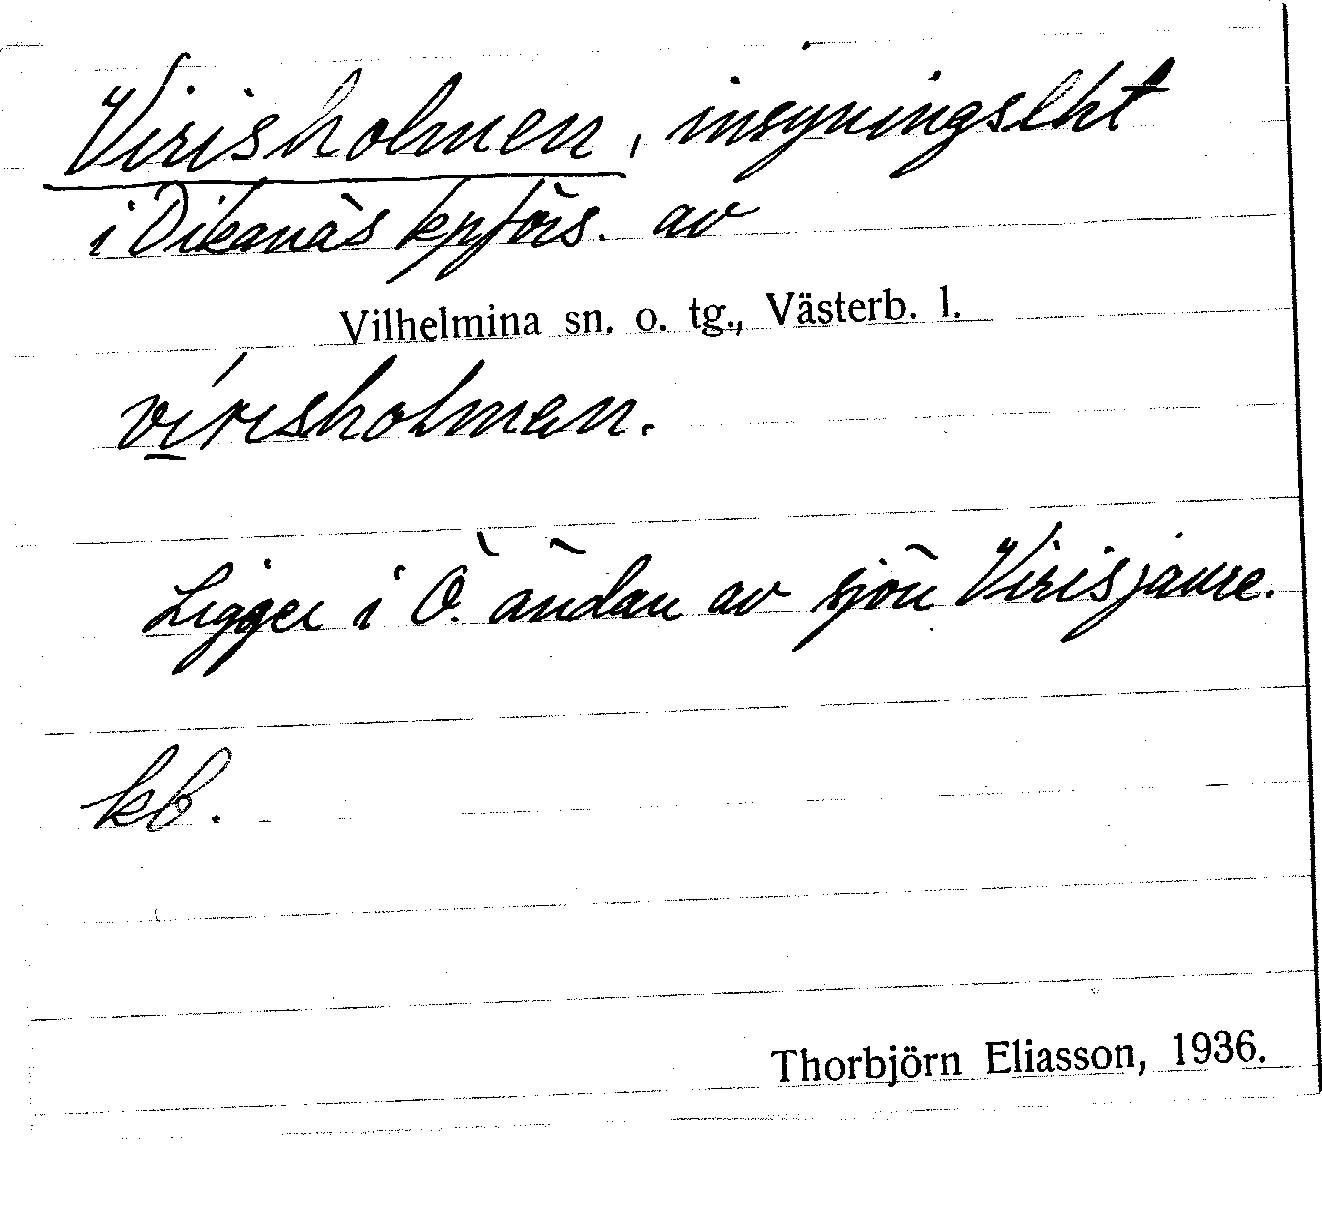 Virisholmen, insyningslht
i Dikanäs kpförs. av
Vilhelmina sn. o. tg., Västerb. l.
vírisholmen.
Ligger i Ö. ändan av sjön Virisjaure.
kb.
Thorbjörn Eliasson, 1936.